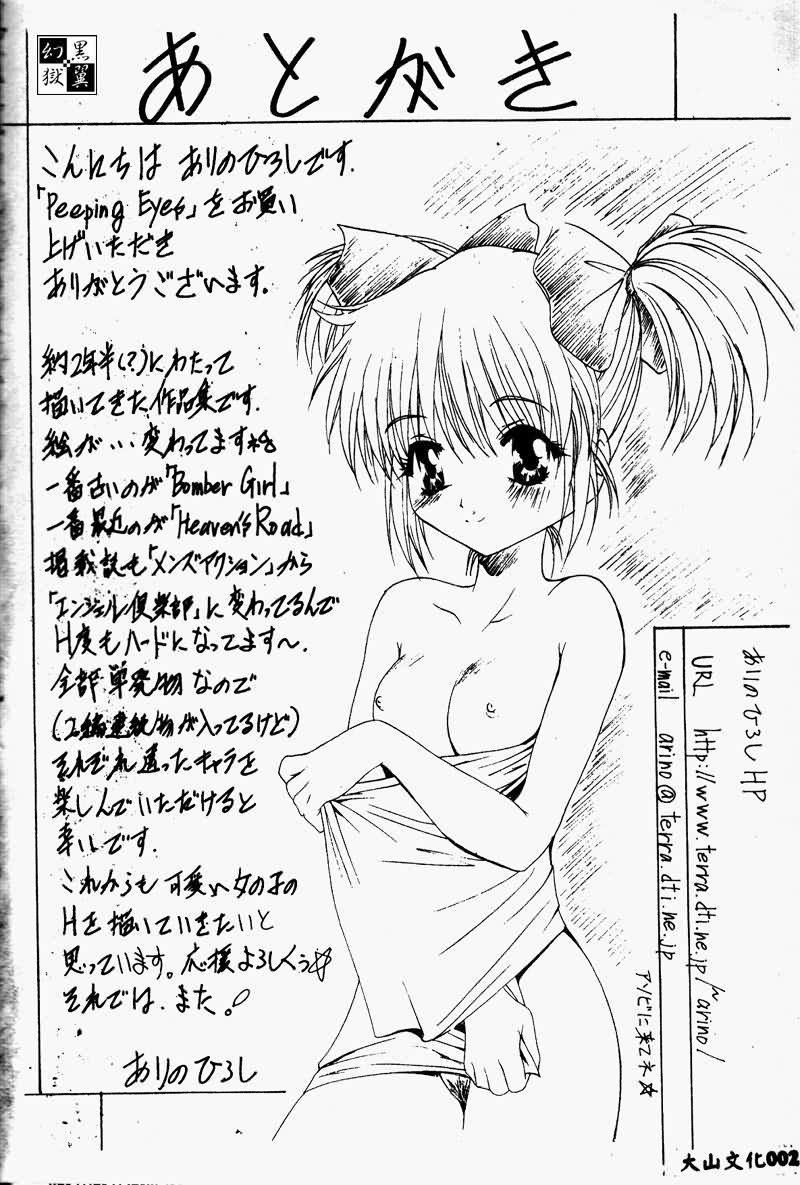 幻 黒
獄 翼
あとがき
こんにちは ありのひろしです.
「Peeping Eyes」をお買い
上げいただき
ありがとうございます.
約2年半(?)にわたって
描いてきた作品集です.
絵が‥変わってますネ
一番古いのが「Bomber Girl」
一番最近のが「Heaven's Road」
掲載誌も「メンズアクション」から
「エンジェル倶楽部」に変わってるんで
H度もハードになってます〜.
全部単発物なので
(2編連続物が入ってるけど)
それぞれ違ったキャラを
楽しんでいただけると
幸いです.
これからも可愛い女の子の
Hを描いていきたいと
思っています。応援よろしくぅ☆
それでは、また。
ありのひろし
ありのひろし HP
URL http://www.terra.dti.ne.jp/~arino/
e-mail arino@terra.dti.ne.jp
アソビに来てネ☆
大山文化002